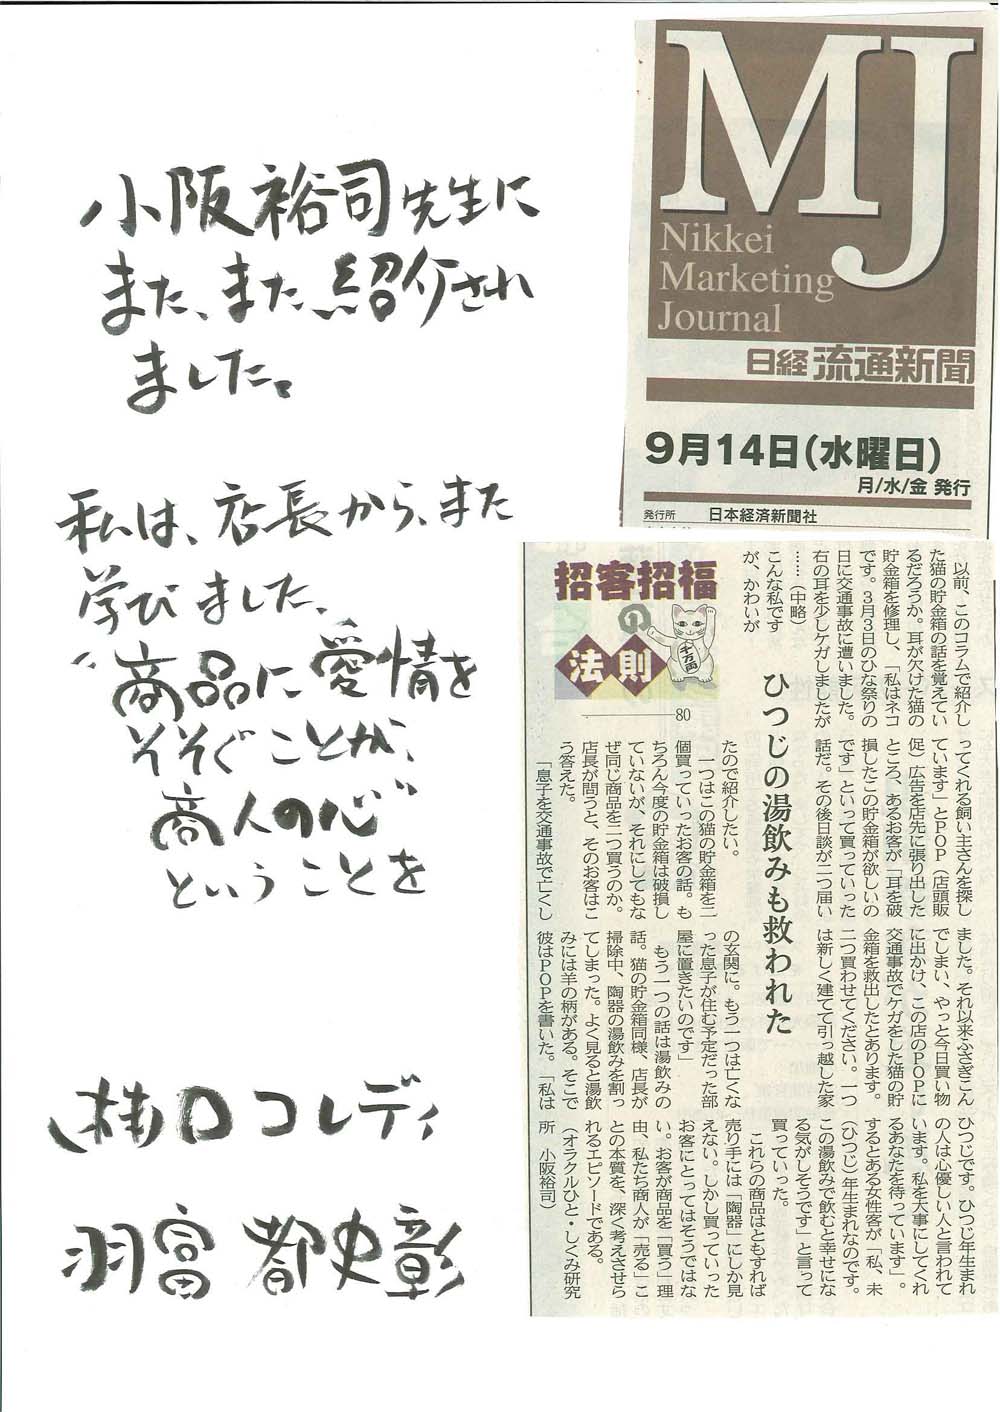 小阪裕司先生に
また、また、紹介され
ました。
私は、店長から、また
学びました、
“商品に愛情を
そそぐことが、
商人の心”
ということを
(株)ロコレディ
羽富 都史彰
MJ
Nikkei
Marketing
Journal
日経流通新聞
9月14日(水曜日)
月/水/金 発行
発行所 日本経済新聞社
招客招福
の
法則
千万両
80
ひつじの湯飲みも救われた
以前、このコラムで紹介し
た猫の貯金箱の話を覚えてい
るだろうか。耳が欠けた猫の
貯金箱を修理し、「私はネコ
です。3月3日のひな祭りの
日に交通事故に遭いました。
右の耳を少しケガしましたが
……(中略)
こんな私です
が、かわいが
ってくれる飼い主さんを探し
ています」とPOP(店頭販
促)広告を店先に張り出した
ところ、あるお客が「耳を破
損したこの貯金箱が欲しいの
です」といって買っていった
話だ。その後日談が二つ届い
たので紹介したい。
一つはこの猫の貯金箱を二
個買っていったお客の話。も
ちろん今度の貯金箱は破損し
ていないが、それにしてもな
ぜ同じ商品を二つ買うのか。
店長が問うと、そのお客はこ
う答えた。
「息子を交通事故で亡くし
ました。それ以来ふさぎこん
でしまい、やっと今日買い物
に出かけ、この店のPOPに
交通事故でケガをした猫の貯
金箱を救出したとあります。
二つ買わせてください。一つ
は新しく建てて引っ越した家
の玄関に。もう一つは亡くな
った息子が住む予定だった部
屋に置きたいのです」
もう一つの話は湯飲みの
話。猫の貯金箱同様、店長が
掃除中、陶器の湯飲みを割っ
てしまった。よく見ると湯飲
みには羊の柄がある。そこで
彼はPOPを書いた。「私は
ひつじです。ひつじ年生まれ
の人は心優しい人と言われて
います。私を大事にしてくれ
るあなたを待っています」。
するとある女性客が「私、未
(ひつじ)年生まれなのです。
この湯飲みで飲むと幸せにな
る気がしそうです」と言って
買っていった。
これらの商品はともすれば
売り手には「陶器」にしか見
えない。しかし買っていった
お客にとってはそうではな
い。お客が商品を「買う」理
由、私たち商人が「売る」こ
との本質を、深く考えさせら
れるエピソードである。
(オラクルひと・しくみ研究
所 小阪裕司)